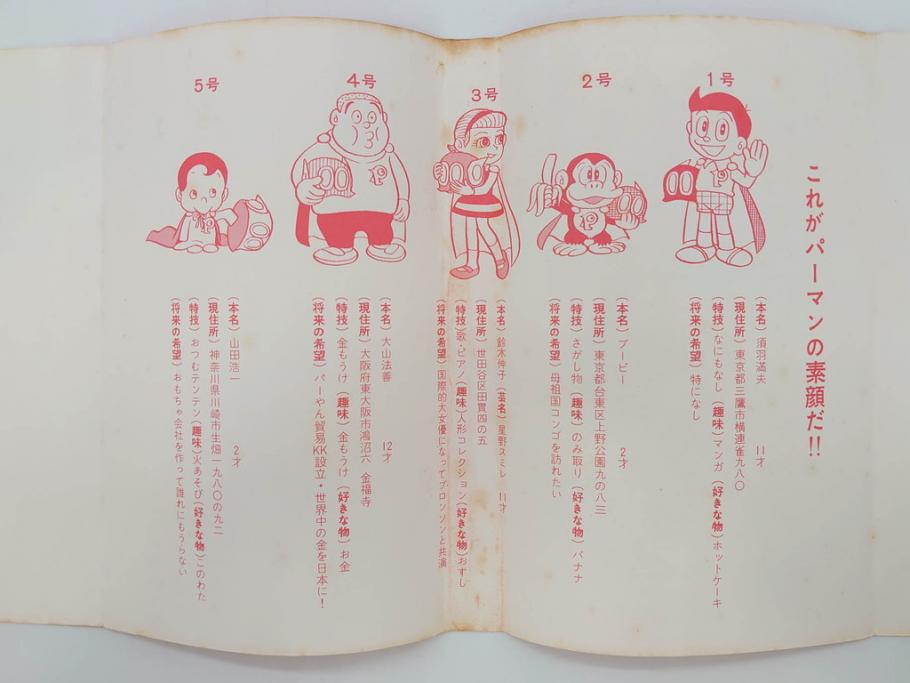 これがパーマンの素顔だ!!
1号
(本名) 須羽満夫 11才
(現住所) 東京都三鷹市横連雀九八〇
(特技) なにもなし (趣味) マンガ (好きな物) ホットケーキ
(将来の希望) 特になし
2号
(本名) ブービー 2才
(現住所) 東京都台東区上野公園九の八三
(特技) さがし物 (趣味) のみ取り (好きな物) バナナ
(将来の希望) 母祖国コンゴを訪れたい
3号
(本名) 鈴木伸子 (芸名) 星野スミレ 11才
(現住所) 世田谷区田貫四の五
(特技) 歌・ピアノ (趣味) 人形コレクション (好きな物) おすし
(将来の希望) 国際的大女優になってブロンソンと共演
4号
(本名) 大山法善 12才
(現住所) 大阪府東大阪市鴻沼六 金福寺
(特技) 金もうけ (趣味) 金もうけ (好きな物) お金
(将来の希望) パーやん貿易KK設立・世界中の金を日本に!
5号
(本名) 山田浩一 2才
(現住所) 神奈川県川崎市生畑一九八〇の九二
(特技) おつむテンテン (趣味) 火あそび (好きな物) このわた
(将来の希望) おもちゃ会社を作って誰れにもうらない
P
P
P
P